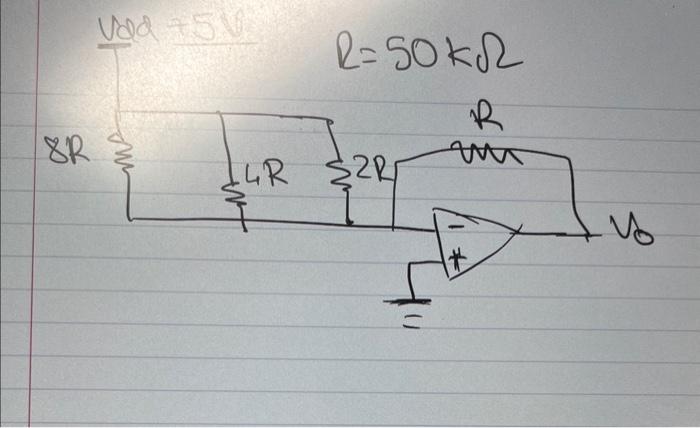 Vdd = 5V
R = 50 kΩ
R
8R
4R
2R
-
+
Vo